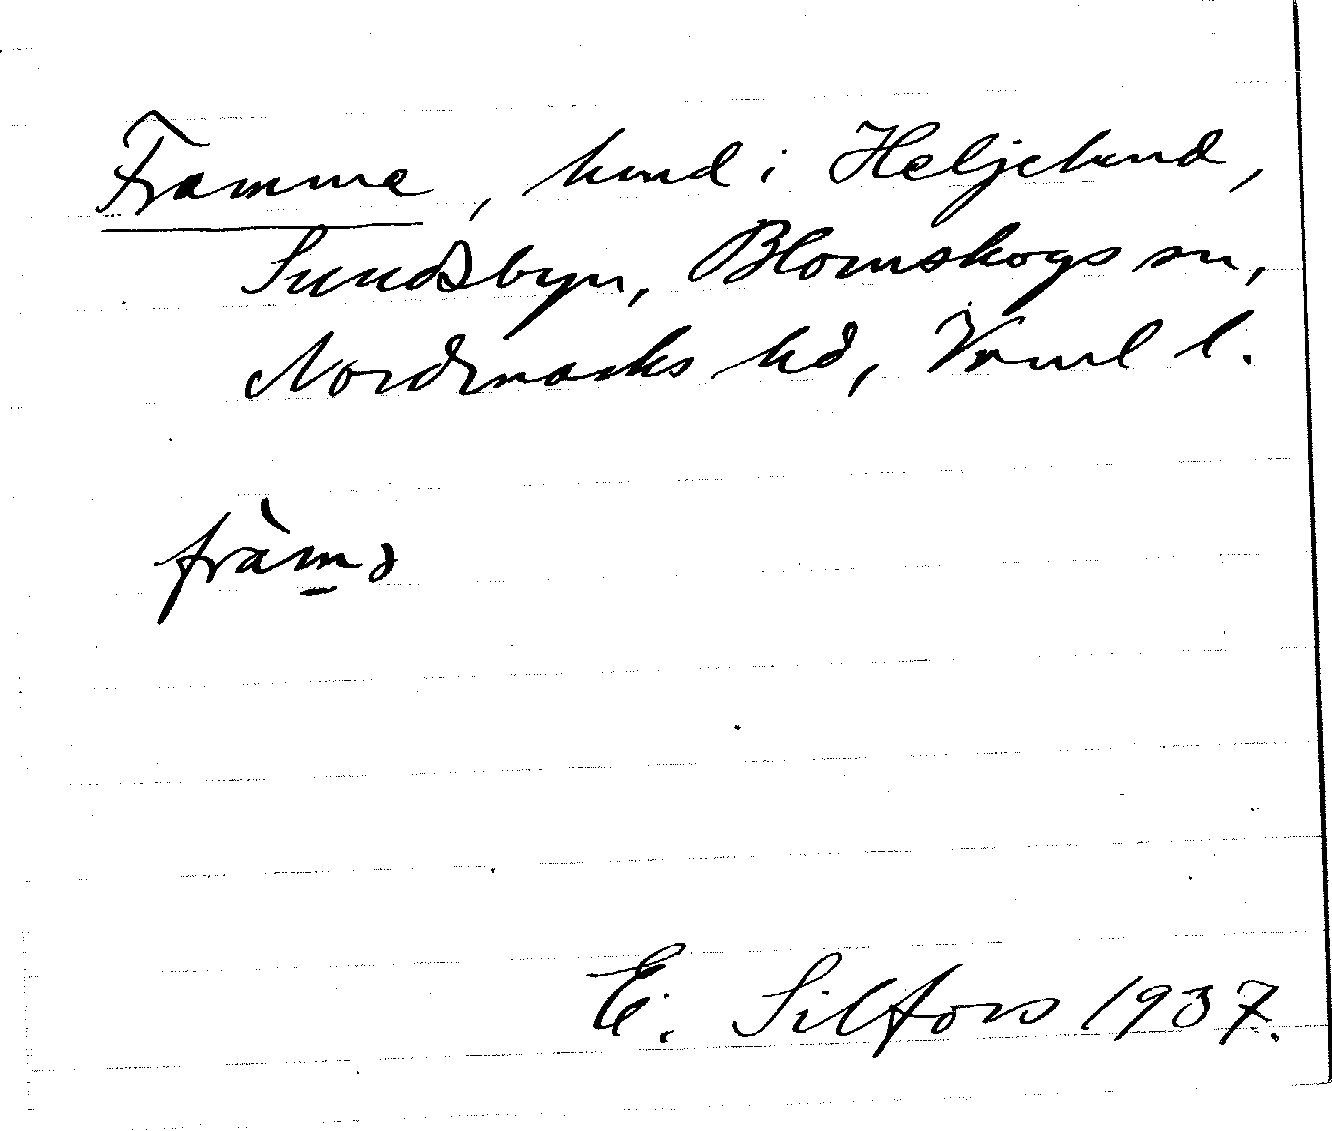 Framme, hund i Heljelund,
Sundsbyn, Blomskogs sn,
Nordmarks hd, Vrml l.
fràmə
E. Silfors 1937.